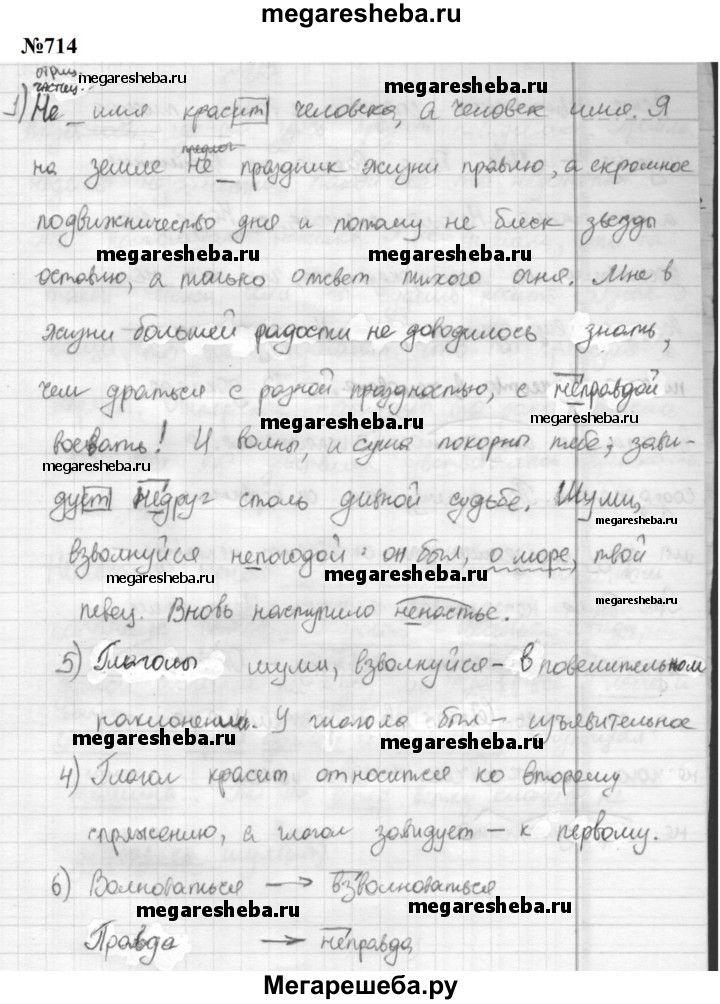 megaresheba.ru
№714
отриц. частиц.
megaresheba.ru megaresheba.ru
1) Не имя красит человека, а человек имя. Я
предлог
на земле не праздник жизни правлю, а скромное
подвижничество дня и потому не блеск звезды
megaresheba.ru megaresheba.ru
оставлю, а только отсвет тихого огня. Мне в
жизни большей радости не доводилось знать,
чем драться с разной праздностью, с неправдой
megaresheba.ru megaresheba.ru
воевать! И волны, и суша покорны тебе; зави-
megaresheba.ru
дует недруг столь дивной судьбе. Шуми,
megaresheba.ru
взволнуйся непогодой: он был, о море, твой
megaresheba.ru megaresheba.ru
певец. Вновь наступило ненастье.
megaresheba.ru
5) Глаголы шуми, взволнуйся - в повелительном
наклонении. У глагола был - изъявительное
megaresheba.ru megaresheba.ru
4) Глагол красит относится ко второму
спряжению, а глагол завидует - к первому.
6) Волноваться → взволноваться
megaresheba.ru megaresheba.ru
Правда → неправда
Мегарешеба.ру